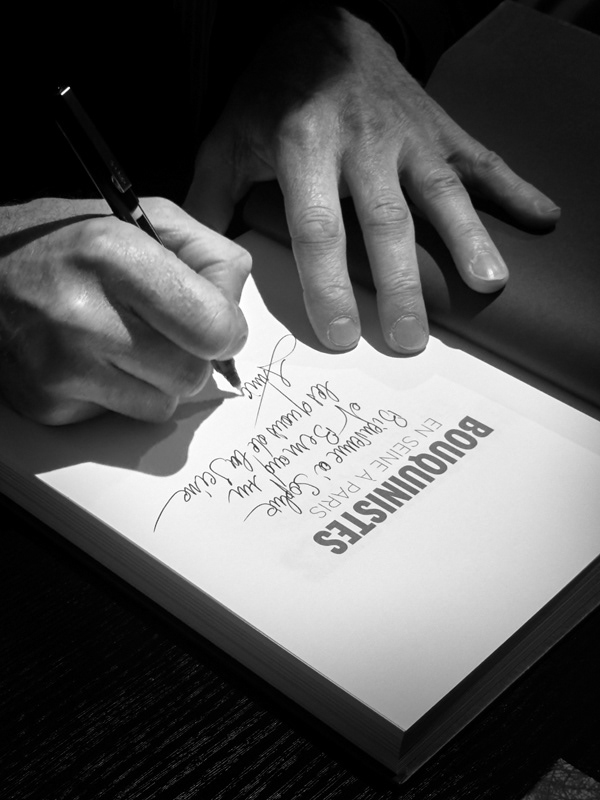 BOUQUINISTES
EN SEINE À PARIS
Bienvenue à Sophie
et Bernard sur
les quais de la Seine